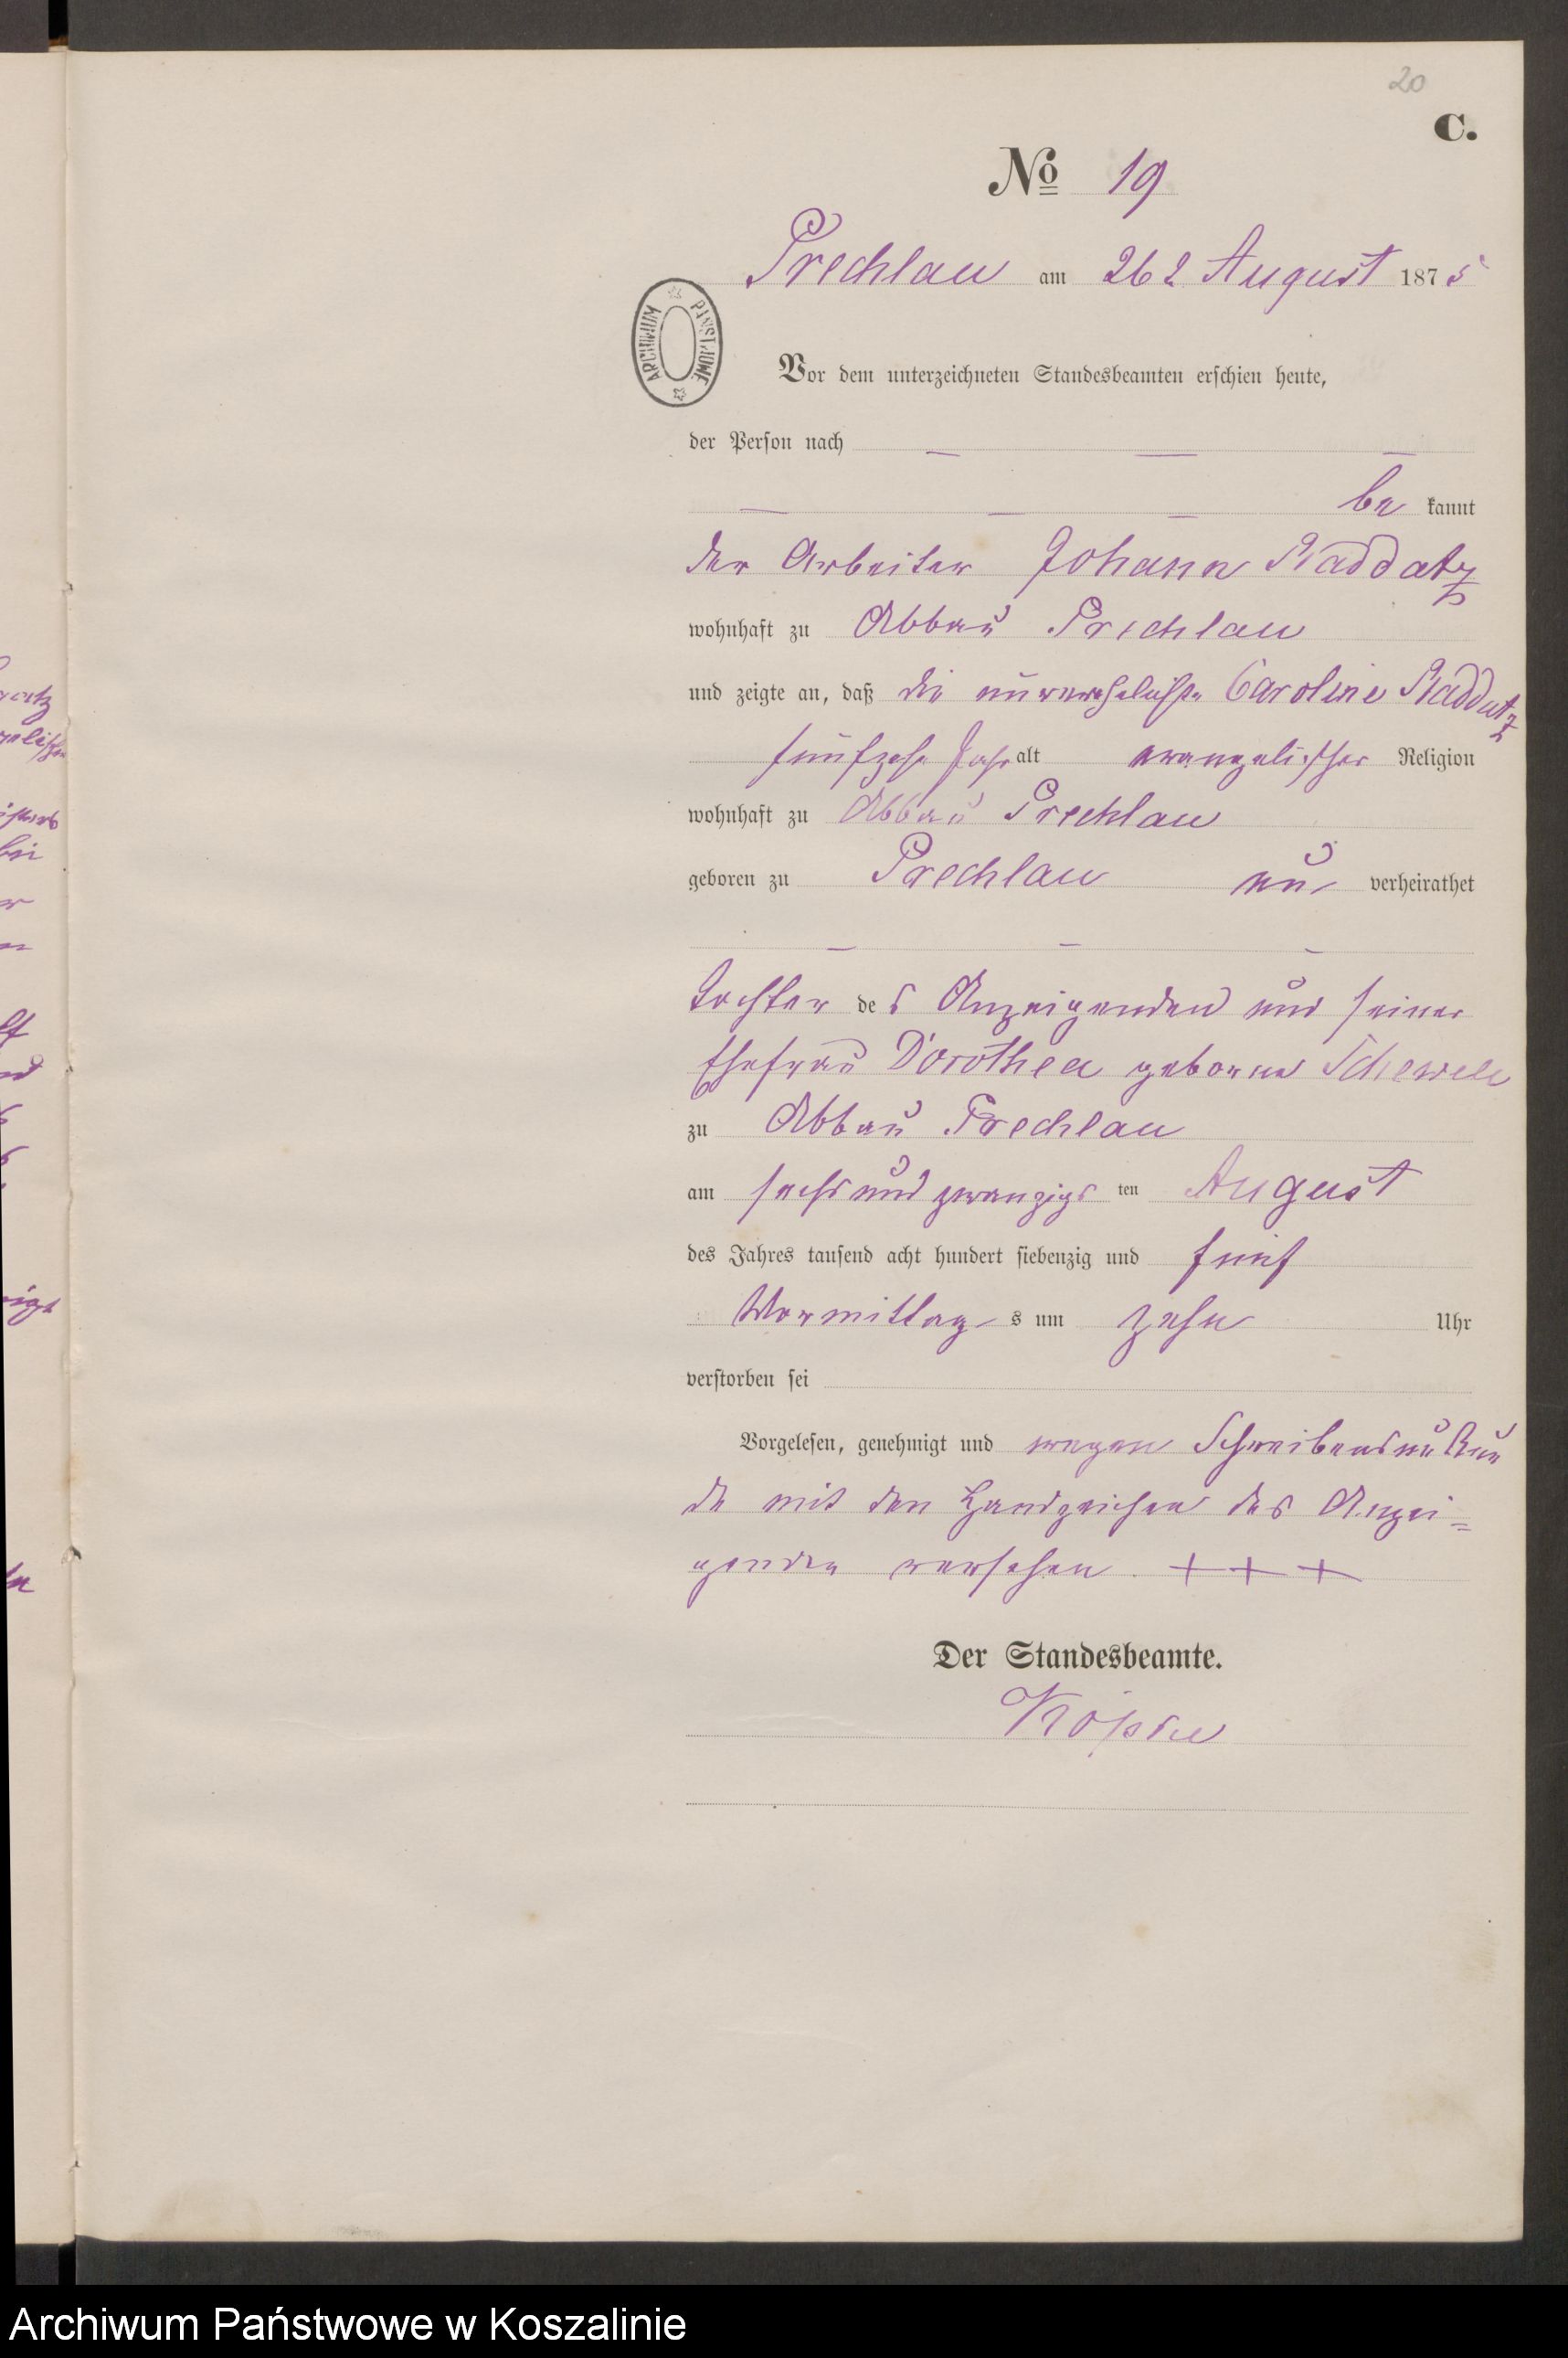 20
C.
No 19
Prechlau am 26t August 1875
ARCHIWUM PAŃSTWOWE
Vor dem unterzeichneten Standesbeamten erschien heute,
der Person nach — — —
— — — be kannt
der Arbeiter Johann Raddatz
wohnhaft zu Abbau Prechlau
und zeigte an, daß die unverehelichte Caroline Raddatz
fünfzehn Jahr alt evangelischer Religion
wohnhaft zu Abbau Prechlau
geboren zu Prechlau un verheirathet
— — —
Tochter des Anzeigenden und seiner
Ehefrau Dorothea geborne
zu Abbau Prechlau
am sechs und zwanzigs ten August
des Jahres tausend acht hundert siebenzig und fünf
Vormittag s um zehn Uhr
verstorben sei
Vorgelesen, genehmigt und wegen Schreibensunkun
de mit den Handzeichen des Anzei=
genden versehen. + + +
Der Standesbeamte.
Archiwum Państwowe w Koszalinie